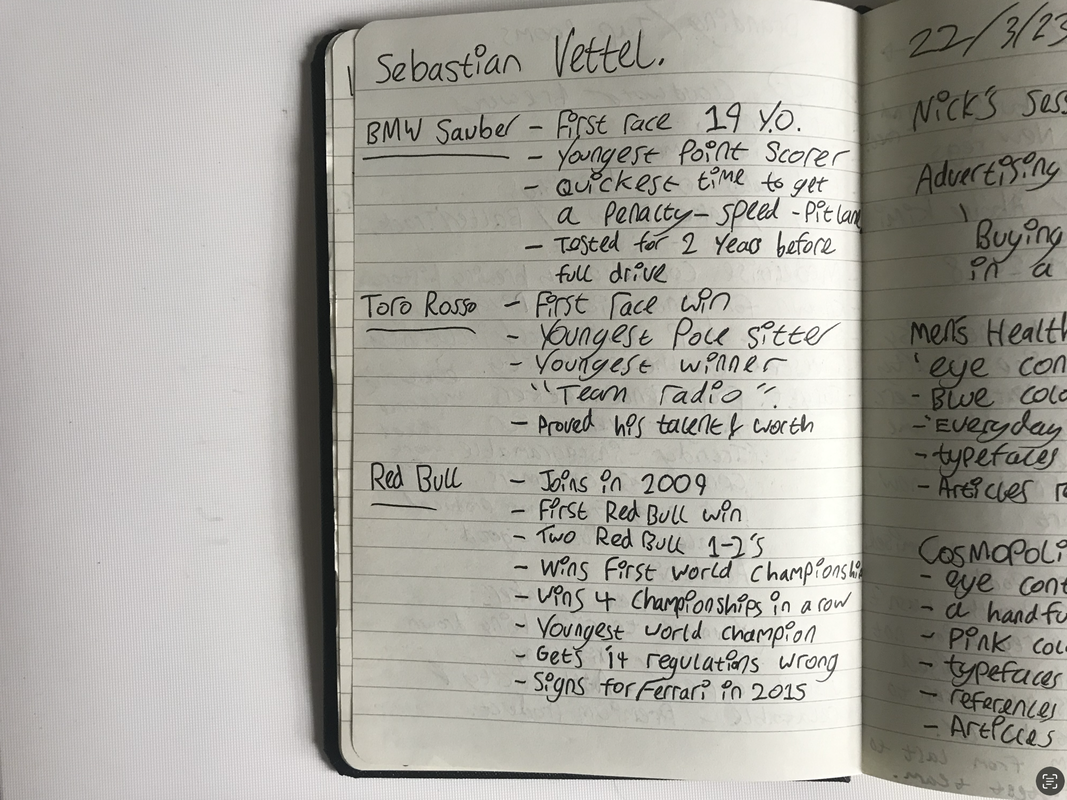 Sebastian Vettel.
BMW Sauber - First race 19 Y.O.
- Youngest Point Scorer
- Quickest time to get
a Penalty - Speed - Pitlane
- Tested for 2 Years before
full drive
Toro Rosso - First race win
- Youngest Pole Sitter
- Youngest winner
"Team radio".
- Proved his talent & worth
Red Bull - Joins in 2009
- First Red Bull win
- Two Red Bull 1-2's
- Wins First world Championshi
- Wins 4 Championships in a row
- Youngest world champion
- Gets '14 regulations wrong
- Signs for Ferrari in 2015
22/3/23
Nick's Ses
Advertising
Buying
in a
Men's Health
'eye con
- Blue colo
- 'Everyday
- typefaces
- Articles r
Cosmopoli
- eye cont
- a handfu
- Pink col
- typefaces
- references
- Articles